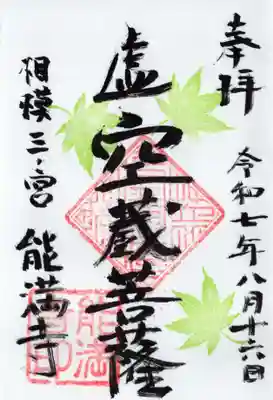 奉拝
令和七年八月十六日
虚空蔵菩薩
相模三ノ宮 能満寺
能満
寺印